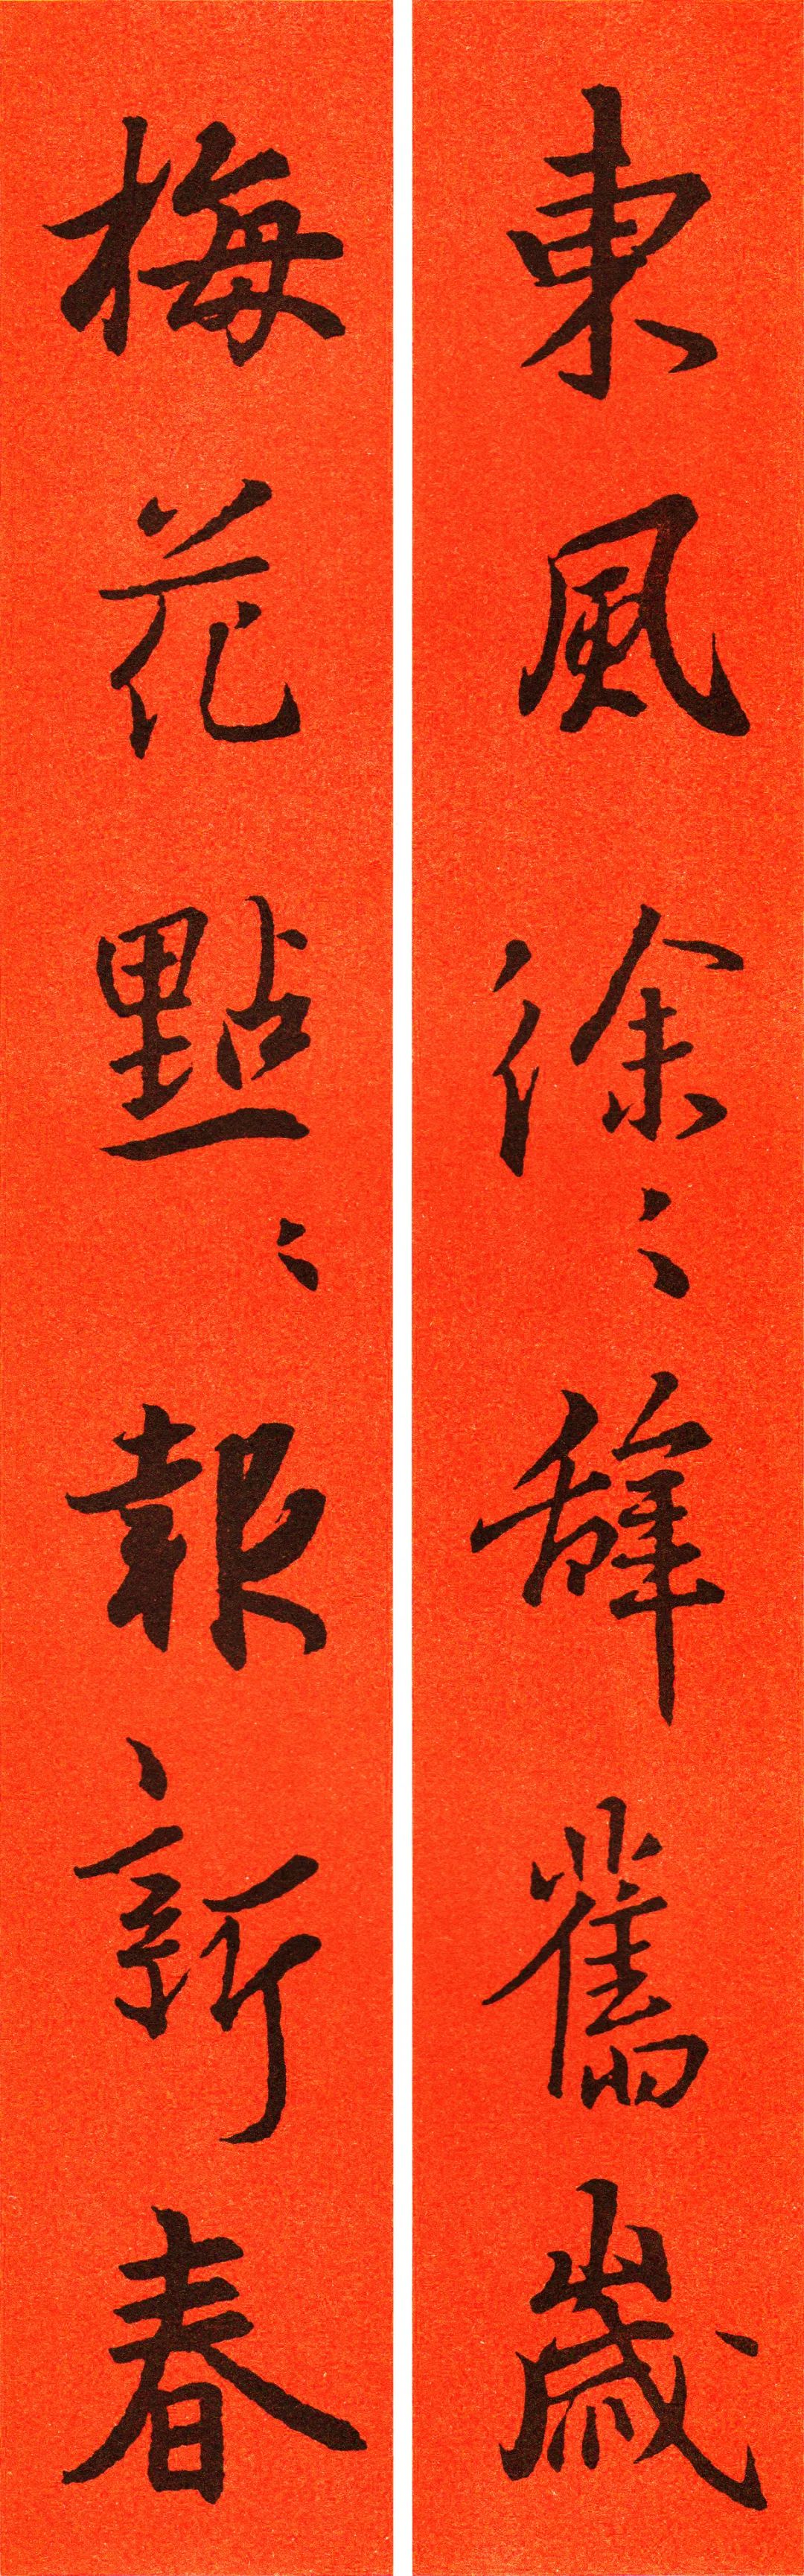 東風徐〻辭舊歲
梅花點〻報新春